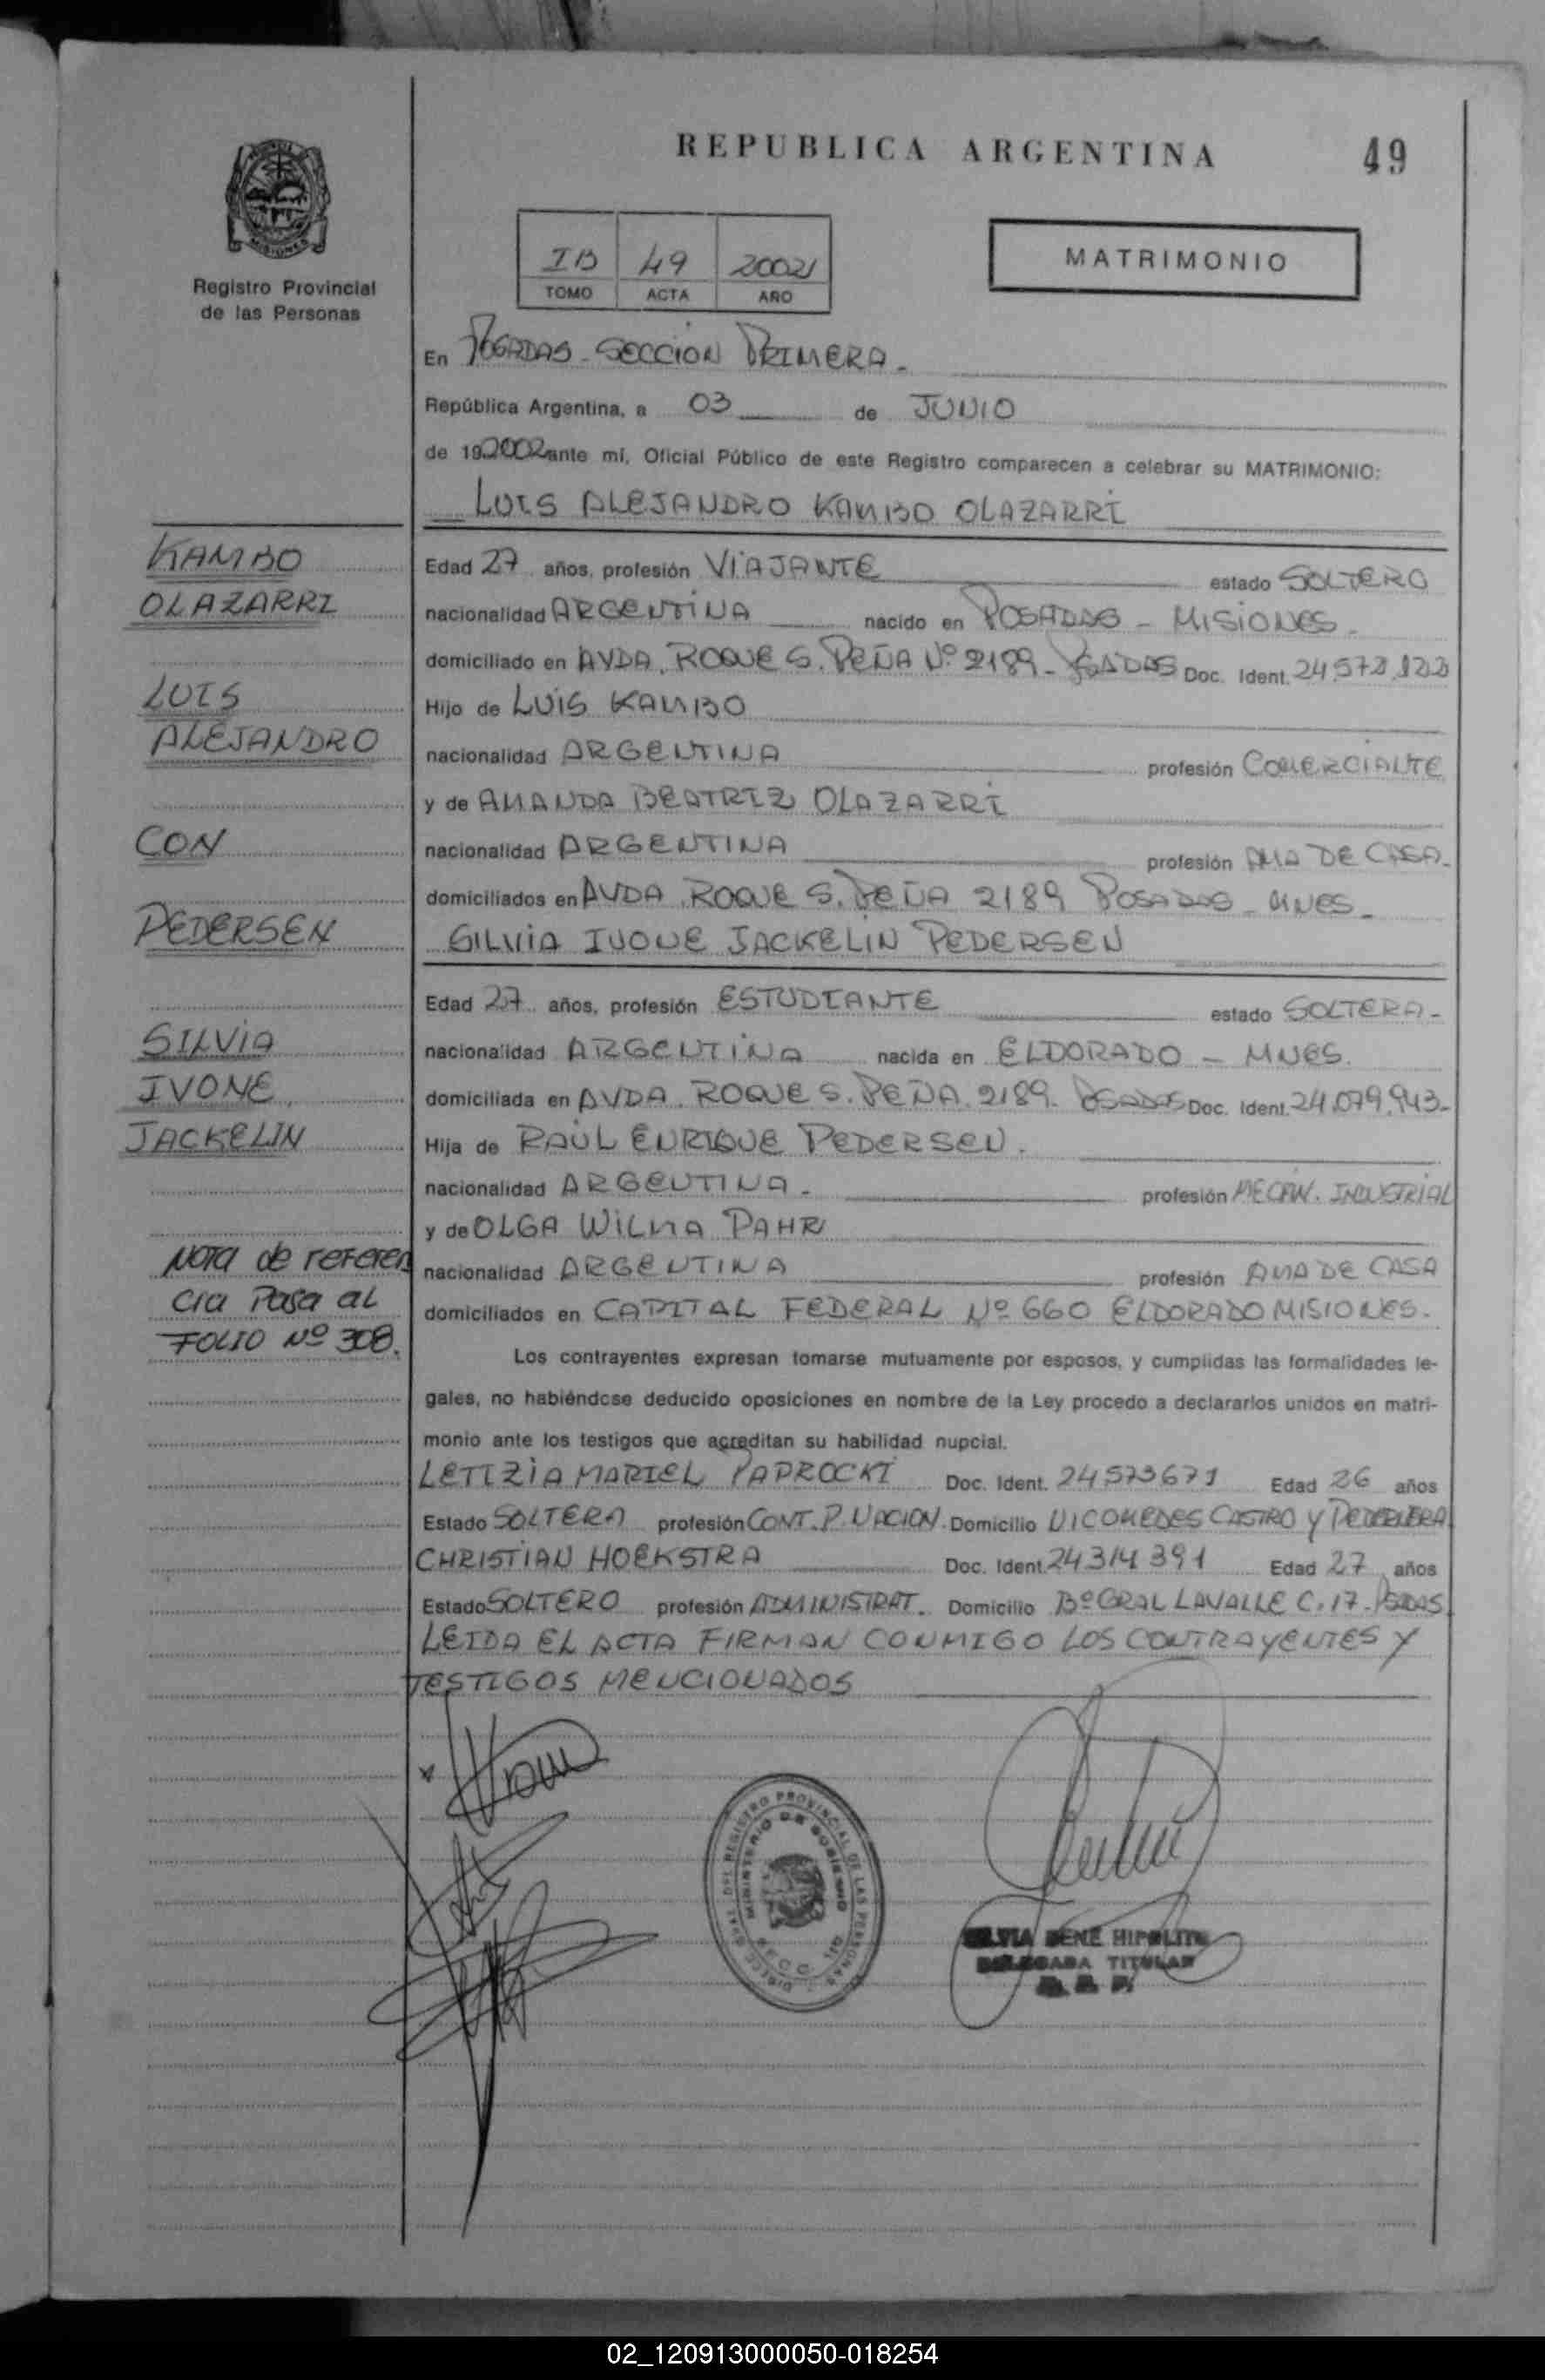 REPUBLICA ARGENTINA
49
MISIONES
Registro Provincial
de las Personas
IB 49 2002
TOMO ACTA AÑO
MATRIMONIO
En POSADAS - SECCION PRIMERA -
República Argentina, a 03 de JUNIO
de 19 2002 ante mí, Oficial Público de este Registro comparecen a celebrar su MATRIMONIO:
LUIS ALEJANDRO KAMBO OLAZARRI
KAMBO
OLAZARRI
LUIS
ALEJANDRO
CON
PEDERSEN
SILVIA
IVONE
JACKELIN
Nota de referen
cia Pasa al
FOLIO Nº 308.
Edad 27 años, profesión VIAJANTE estado SOLTERO
nacionalidad ARGENTINA nacido en POSADAS - MISIONES -
domiciliado en AVDA. ROQUE S. PEÑA Nº 2189 - POSADAS Doc. Ident. 24.572.122
Hijo de LUIS KAMBO
nacionalidad ARGENTINA profesión COMERCIANTE
y de AMANDA BEATRIZ OLAZARRI
nacionalidad ARGENTINA profesión AMA DE CASA -
domiciliados en AVDA. ROQUE S. PEÑA 2189 POSADAS - MNES -
SILVIA IVONE JACKELIN PEDERSEN
Edad 27 años, profesión ESTUDIANTE estado SOLTERA -
nacionalidad ARGENTINA nacida en ELDORADO - MNES.
domiciliada en AVDA. ROQUE S. PEÑA. 2189. POSADAS Doc. Ident. 24.079.943 -
Hija de RAÚL ENRIQUE PEDERSEN.
nacionalidad ARGENTINA - profesión MECAN. INDUSTRIAL
y de OLGA WILMA PAHR
nacionalidad ARGENTINA profesión AMA DE CASA
domiciliados en CAPITAL FEDERAL Nº 660 ELDORADO MISIONES.
Los contrayentes expresan tomarse mutuamente por esposos, y cumplidas las formalidades le-
gales, no habiéndose deducido oposiciones en nombre de la Ley procedo a declararlos unidos en matri-
monio ante los testigos que acreditan su habilidad nupcial.
LETIZIA MARIEL PAPROCKI Doc. Ident. 24573671 Edad 26 años
Estado SOLTERA profesión CONT. P. NACION. Domicilio NICOMEDES CASTRO Y PEDERNERA
CHRISTIAN HOEKSTRA Doc. Ident. 24314391 Edad 27 años
Estado SOLTERO profesión ADMINISTRAT. Domicilio Bº GRAL LAVALLE C. 17 - POSADAS
LEIDA EL ACTA FIRMAN CONMIGO LOS CONTRAYENTES Y
TESTIGOS MENCIONADOS
DEL REGISTRO PROVINCIAL DE LAS PERSONAS
MINISTERIO DE GOBIERNO
SILVIA BENE HIPOLITO
DELEGADA TITULAR
02_120913000050-018254